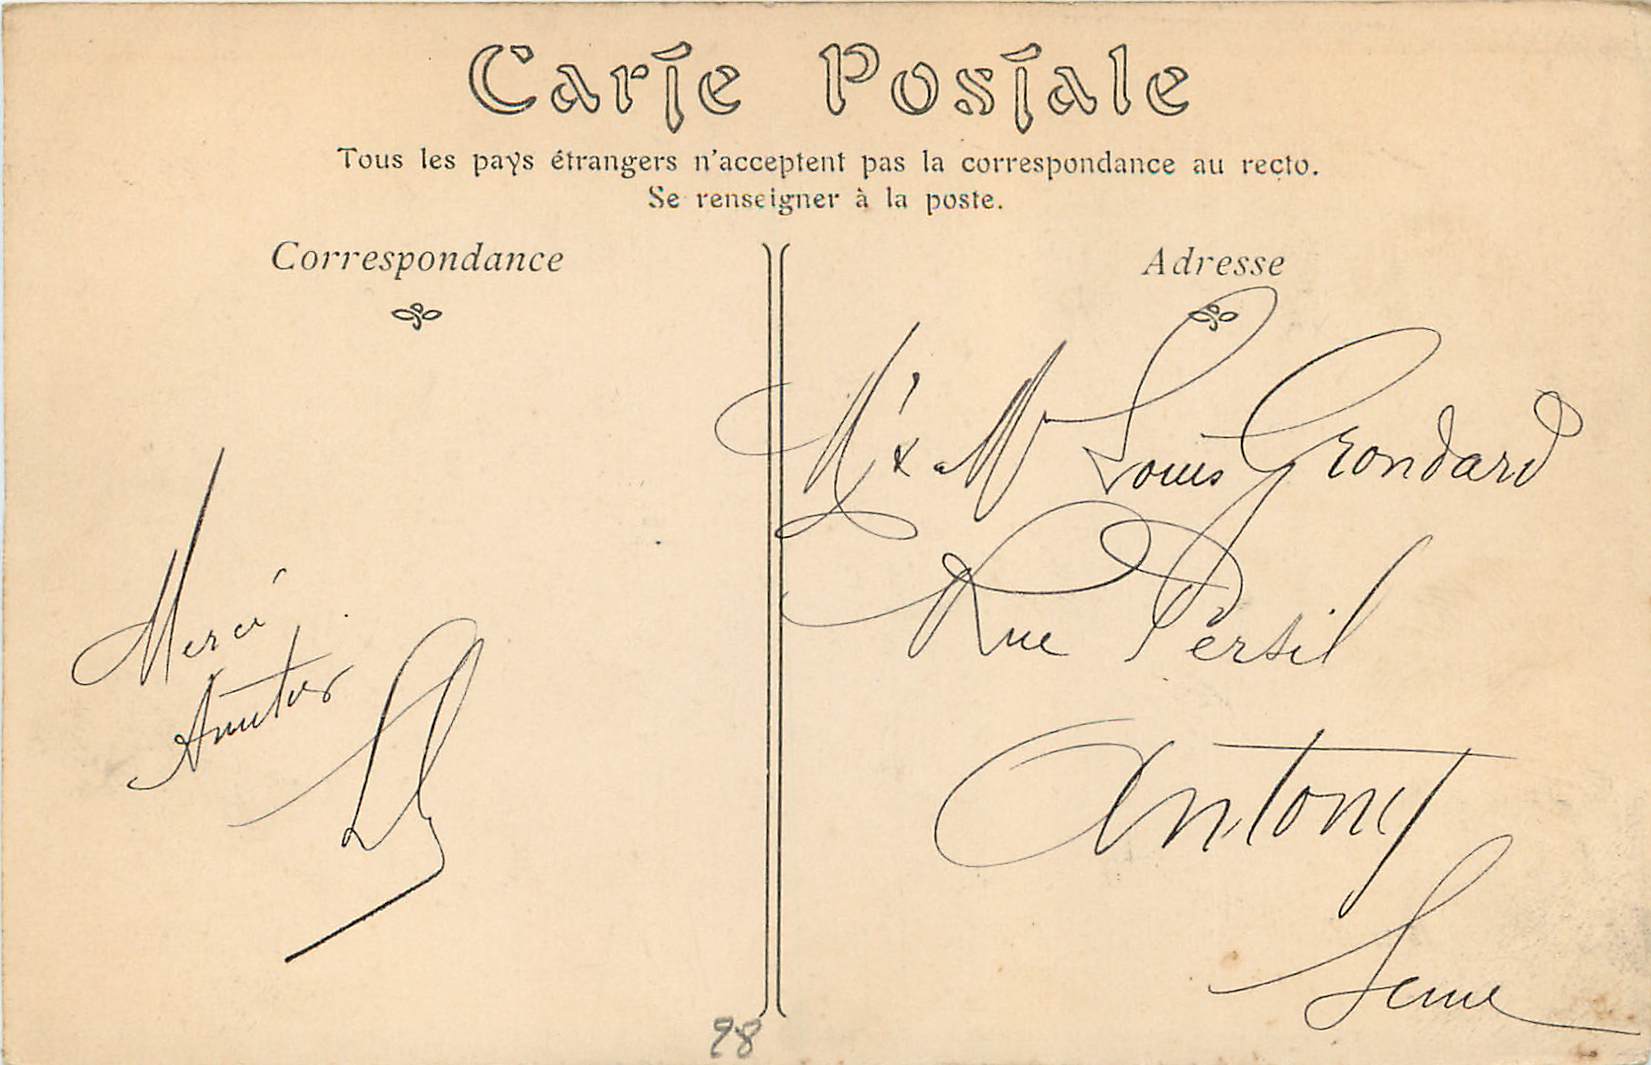 Carte Postale
Tous les pays étrangers n'acceptent pas la correspondance au recto.
Se renseigner à la poste.
Correspondance
Merci
Amitiés
Adresse
Mr & Me Louis Grondard
Rue Persil
Antony
Seine
98